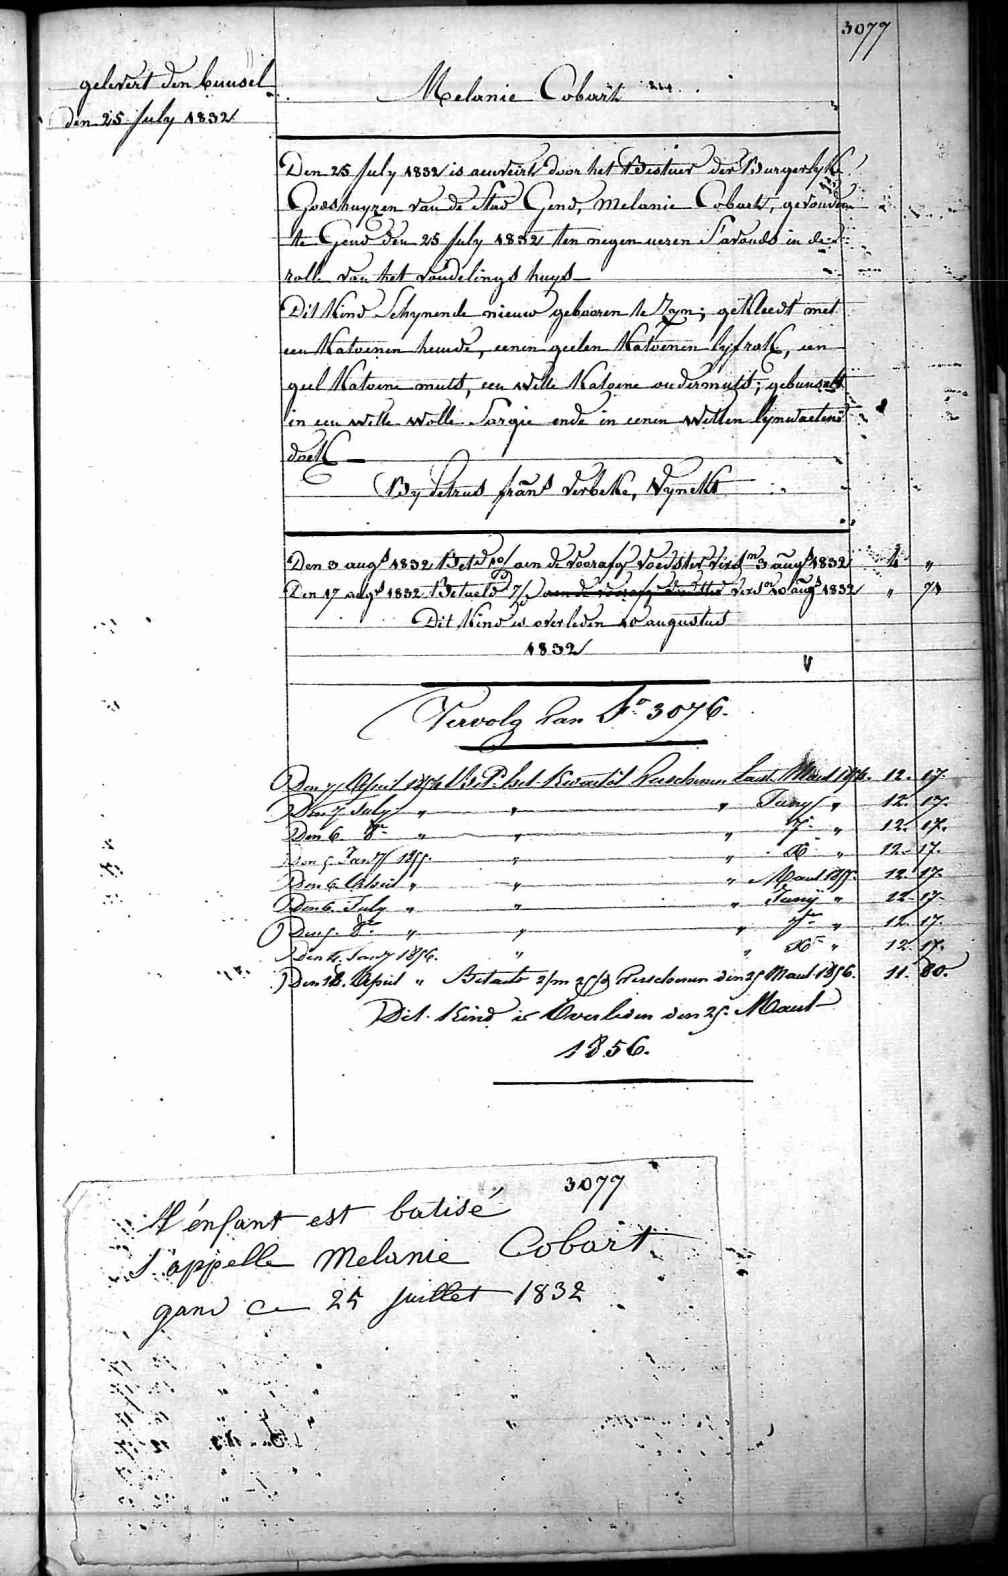 3077
gelevert den bunsel
den 25 july 1832
Melanie Cobart
Den 25 july 1832 is aenveirt door het Bestier der Burgerlyke
Godshuyzen van de Stad Gend, Melanie Cobart, gevonden
te Gend den 25 july 1832 ten negen ueren s'avonds in de
rolle van het vondelings huys
Dit Kind Schynende nieuw gebooren te Zyn; gekleedt met
een Katoenen hemde, eenen geelen Katoenen lyfrok, een
geel Katoene muts, een witte Katoene ondermuts; gebunselt
in een witte wolle Sargie ende in eenen witten lynwaetens
doek
By Petrus frans Verbeke, Wynckt
Den 3 augs 1832 Bet aen de voorsz voedster 3 augs 1832 4 "
Den 17 augs 1832 Betaeld 10 augs 1832 " 74
Dit Kind is overleden 10 augustus
1832
Vervolg van No 3076.
Den 7 April 1854 het Kwartier Verschenen laest Maert 1854. 12. 17.
Den 7 July " " " Juny " 12. 17.
Den 6. 8re " " " 7re " 12. 17.
Den 5 Jany 1855. " " Xre " 12. 17.
Den 6. April " " " Maert 1855. 12. 17.
Den 6. July " " " Juny " 12. 17.
Den 5. 8re " " " 7re " 12. 17.
Den 4. Jany 1856. " " Xre " 12. 17.
Den 18. April " Betaelt 2/m 25/d Verschenen den 25 Maert 1856. 11. 80.
Dit Kind is Overleden den 25. Maert
1856.
3077
L'énfant est batisé
s'appelle Melanie Cobart
gand ce 25 juillet 1832